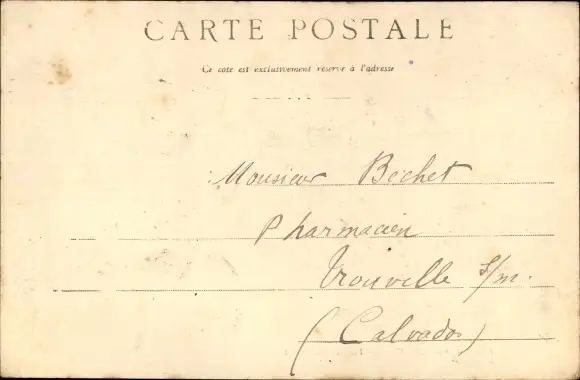 CARTE POSTALE
Ce côté est exclusivement réservé à l'adresse
Monsieur Béchet
Pharmacien
Trouville s/m.
(Calvados)